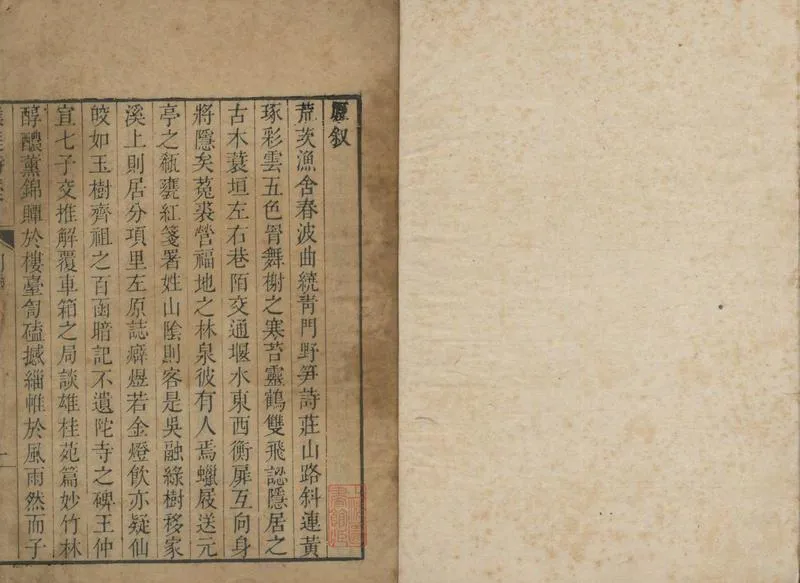 原叙
荒茨漁舍春波曲繞靑門野笋詩莊山路斜連黃
琢彩雲五色骨舞榭之寒苔靈鶴雙飛認隱居之
古木蓑垣左右巷陌交通堰水東西衡扉互向身
將隱矣菟裘營福地之林泉彼有人焉蠟屐送元
亭之瓻甕紅箋署姓山陰則客是吳融綠樹移家
溪上則居分項里左原誌癖煜若金燈飮亦疑仙
皎如玉樹齊祖之百函暗記不遺陀寺之碑王仲
宣七子交推解覆車箱之局談雄桂苑篇妙竹林
醇醲薰錦
於樓臺匒磕撼緇帷於風雨然而子